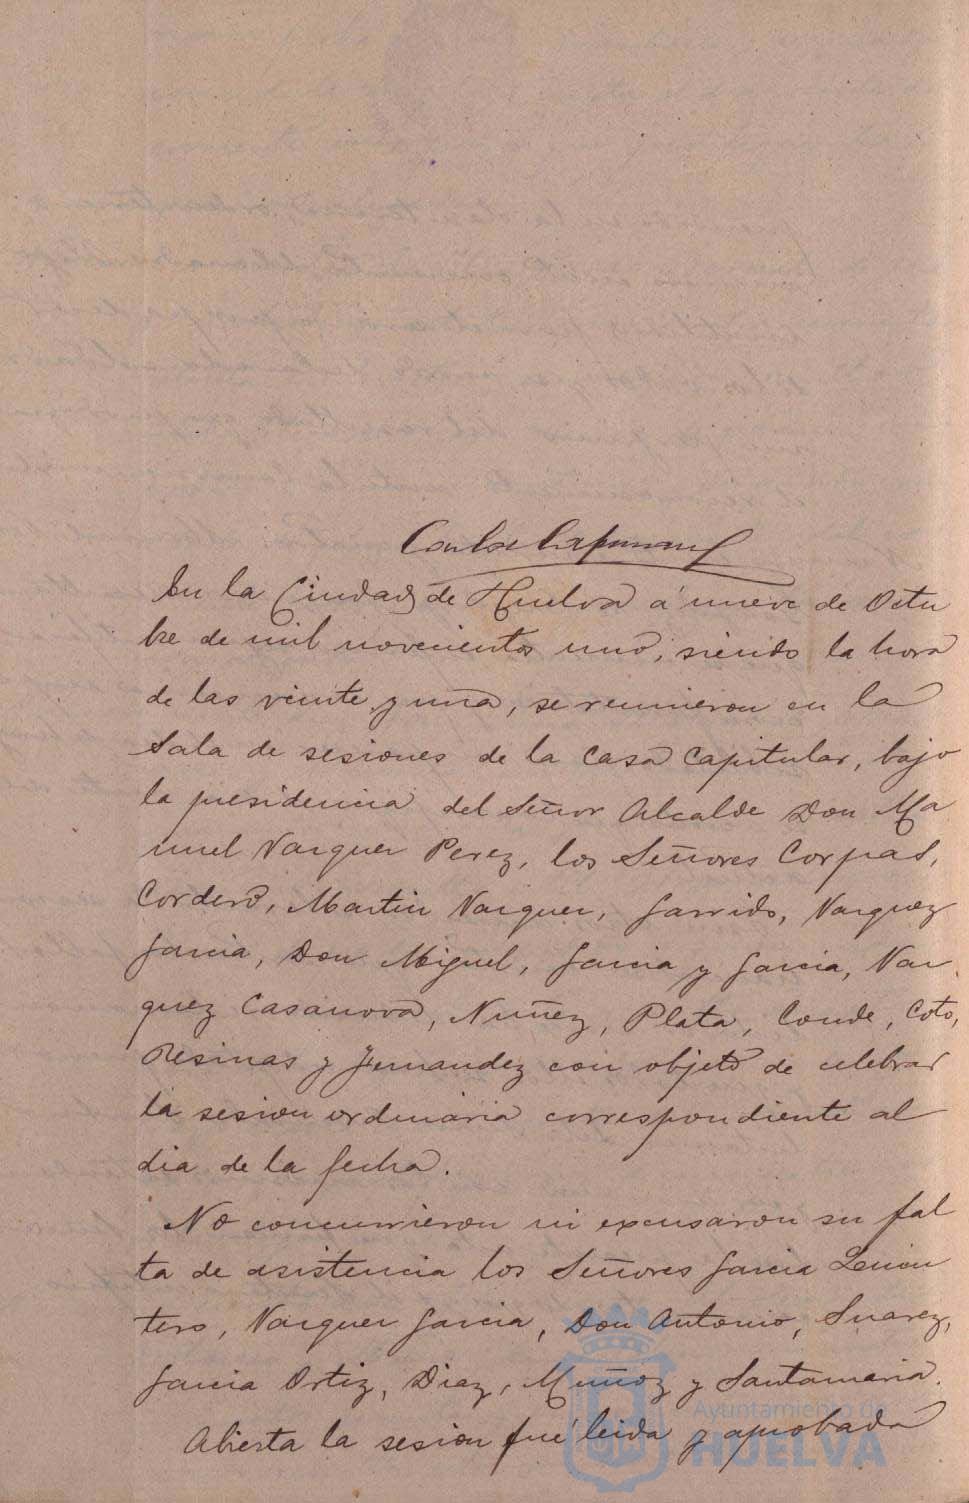 En la Ciudad de Huelva á nueve de Octu
bre de mil novecientos uno, siendo la hora
de las veinte y una, se reunieron en la
Sala de sesiones de la Casa Capitular, bajo
la presidencia del Señor Alcalde Don Ma
nuel Vazquez Perez, los Señores Corpas,
Cordero, Martin Vazquez, Garrido, Vazquez
Garcia, Don Miguel, Garcia y Garcia, Vaz
quez Casanova, Nuñez, Plata, Conde, Coto,
Resinas y Fernandez con objeto de celebrar
la sesion ordinaria correspondiente al
dia de la fecha.
No concurrieron ni excusaron su fal
ta de asistencia los Señores Garcia
tero, Vazquez Garcia, Don Antonio, Suarez,
Garcia Ortiz, Diaz, Muñoz y Santamaria.
Abierta la sesion fué leida y aprobada
Ayuntamiento de
HUELVA